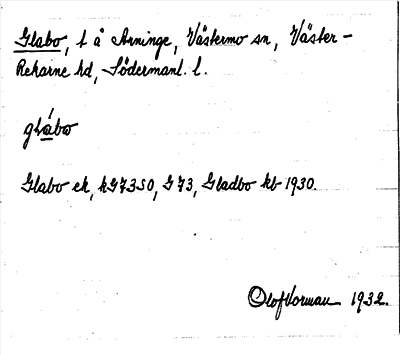 Glabo, t å Arninge, Västermo sn, Väster-
Rekarne hd, Södermanl. l.
glábo
Glabo ek, hG7350, G 73, Gladbo kb 1930.
Olof Vorman 1932.